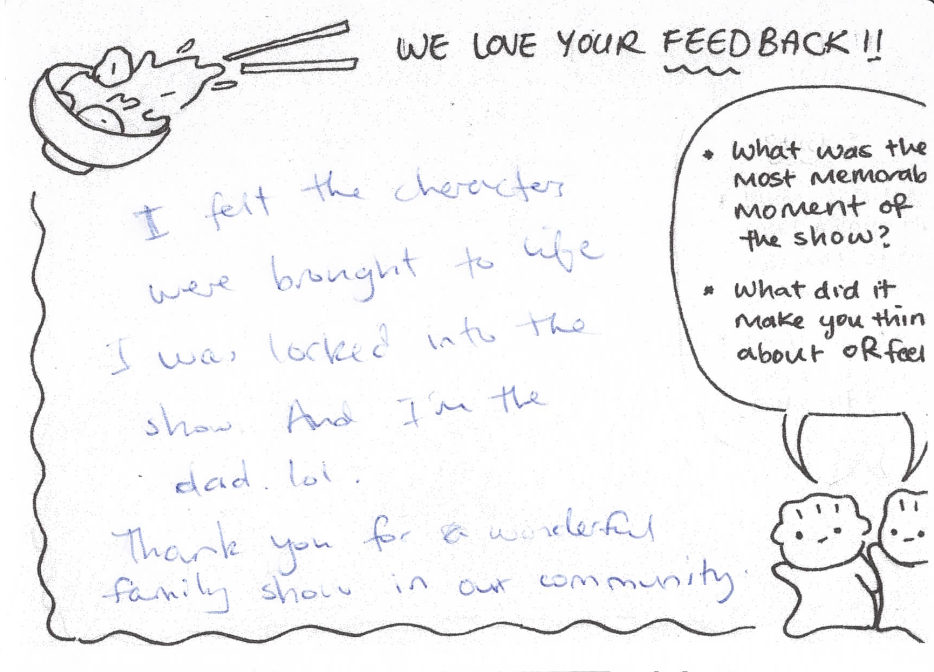 WE LOVE YOUR FEEDBACK!!
* What was the
most memorab
moment of
the show?
* What did it
make you thin
about OR feel
I felt the characters
were brought to life
I was locked into the
show. And I'm the
dad. lol.
Thank you for a wonderful
family show in our community.